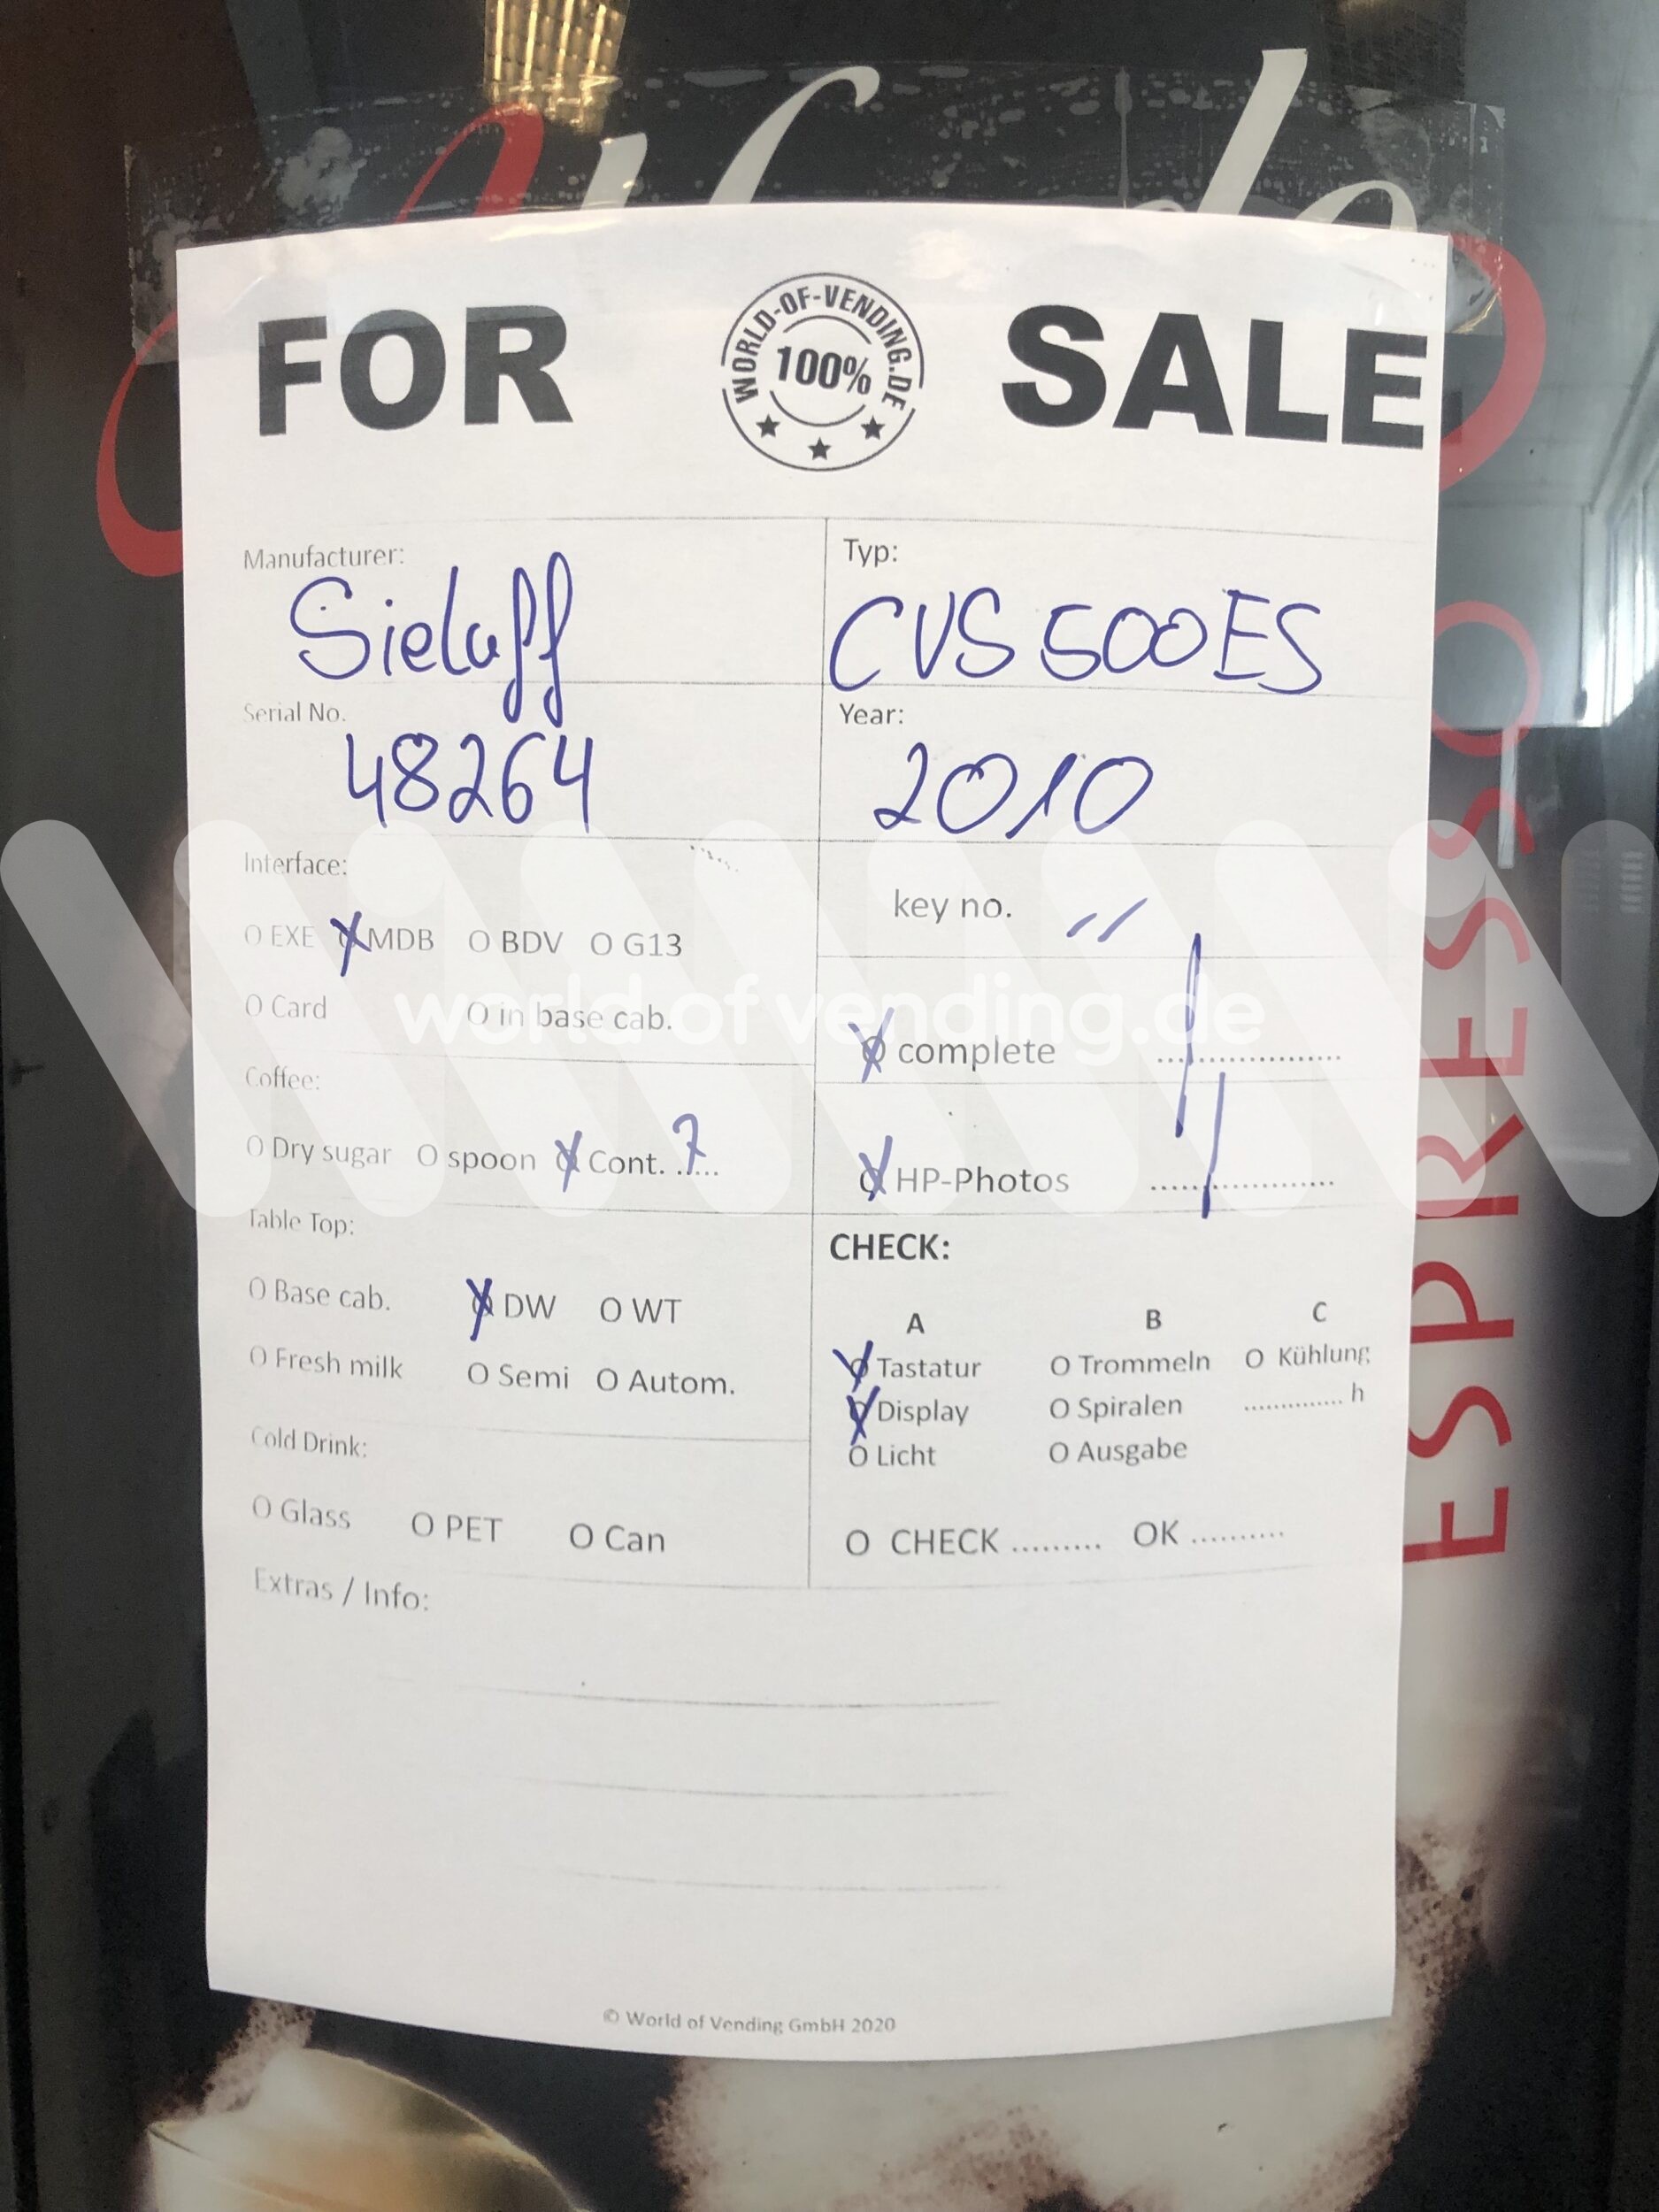 FOR SALE
WORLD-OF-VENDING.DE
100%
Manufacturer: Typ:
Sielaff CVS 500ES
Serial No. Year:
48264 2010
Interface: key no. "
O EXE X MDB O BDV O G13
O Card O in base cab. X complete ....................
world of vending.de
Coffee:
O Dry sugar O spoon X Cont. 7 X HP-Photos ....................
Table Top: CHECK:
O Base cab. X DW O WT A B C
O Fresh milk O Semi O Autom. X Tastatur O Trommeln O Kühlung
X Display O Spiralen ............... h
Cold Drink: O Licht O Ausgabe
O Glass O PET O Can O CHECK ......... OK ..........
Extras / Info:
© World of Vending GmbH 2020
ESPRESSO